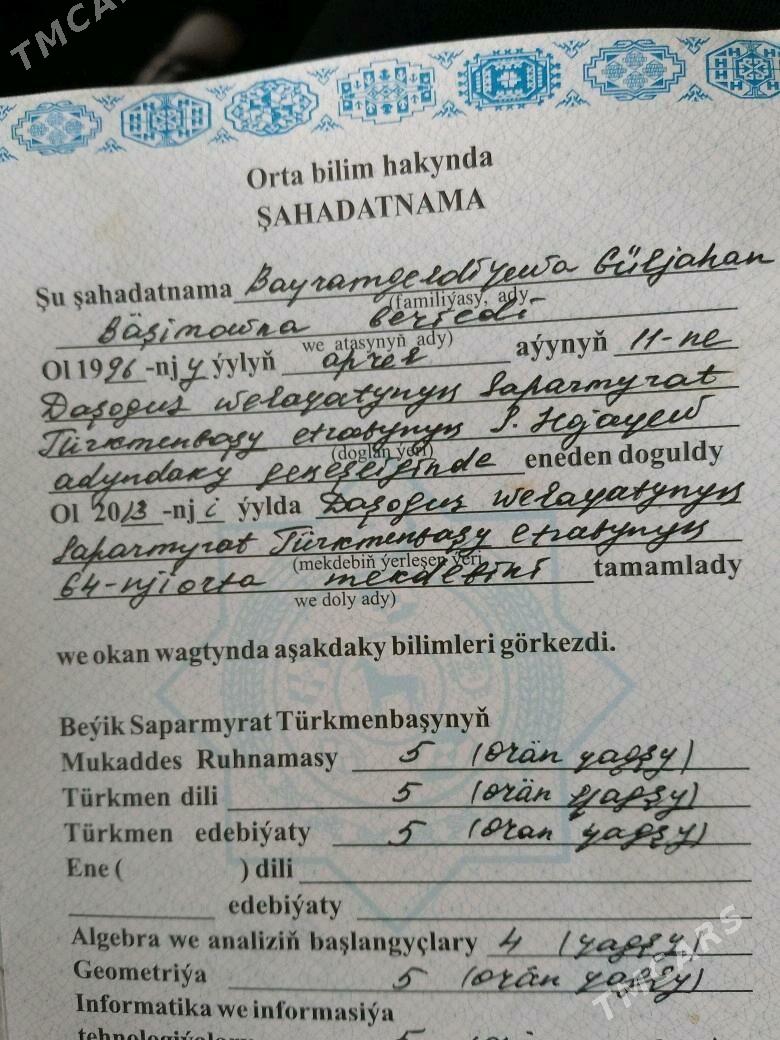 TMCARS
Orta bilim hakynda
ŞAHADATNAMA
Şu şahadatnama Bayramgeldiyewa Güljahan
(familiýasy, ady
Bäşimowna berledi
we atasynyň ady)
Ol 1996-njy ýylyň aprel aýynyň 11-ne
Daşoguz welayatynyň Saparmyrat
Türkmenbaşy etrabynyň P. Hojayew
(doglan ýeri)
adyndaky geňeşliginde eneden doguldy
Ol 2013-nji ýylda Daşoguz welayatynyň
Saparmyrat Türkmenbaşy etrabynyň
(mekdebiň ýerleşen ýeri
64-nji orta mekdebini tamamlady
we doly ady)
we okan wagtynda aşakdaky bilimleri görkezdi.
Beýik Saparmyrat Türkmenbaşynyň
Mukaddes Ruhnamasy 5 (örän yagşy)
Türkmen dili 5 (örän yagşy)
Türkmen edebiýaty 5 (örän yagşy)
Ene ( ) dili
edebiýaty
Algebra we analiziň başlangyçlary 4 (yagşy)
Geometriýa 5 (örän yagşy)
Informatika we informasiýa
tehnologiýalary 5
TMCARS